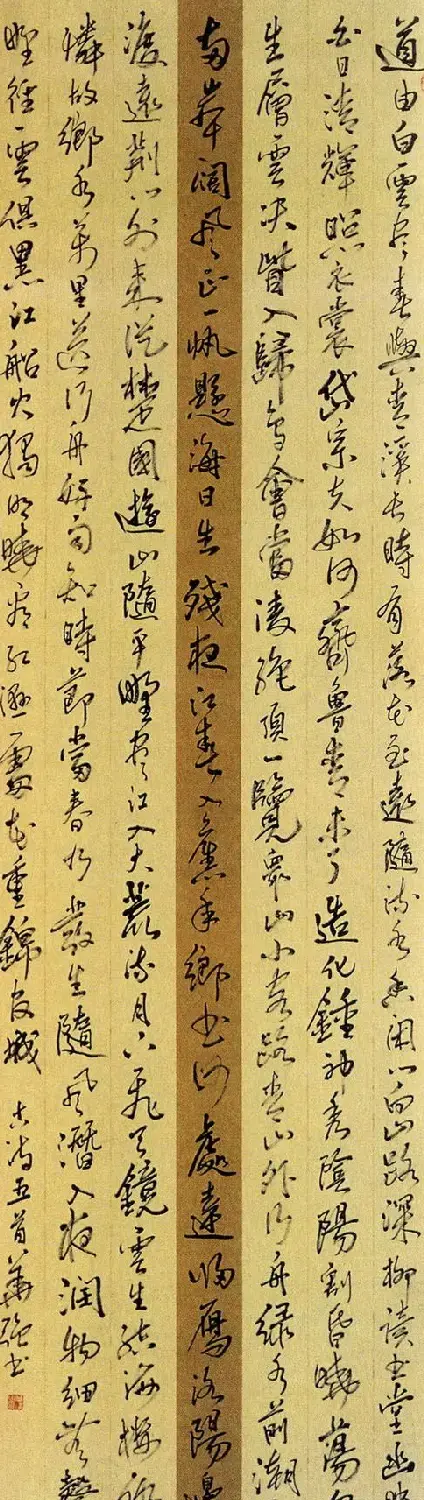 道由白雲盡春與青溪長時有落花至遠隨流水香閑門向山路深柳讀書堂幽映
每日清輝照衣裳岱宗夫如何齊魯青未了造化鍾神秀陰陽割昏曉蕩胸
生層雲決眥入歸鳥會當凌絕頂一覽衆山小客路青山外行舟綠水前潮
兩岸闊風正一帆懸海日生殘夜江春入舊年鄉書何處達歸雁洛陽邊
渡遠荊門外來從楚國遊山隨平野盡江入大荒流月下飛天鏡雲生結海樓仍
憐故鄉水萬里送行舟好雨知時節當春乃發生隨風潛入夜潤物細無聲
野徑雲俱黑江船火獨明曉看紅濕處花重錦官城 古詩五首 華強書